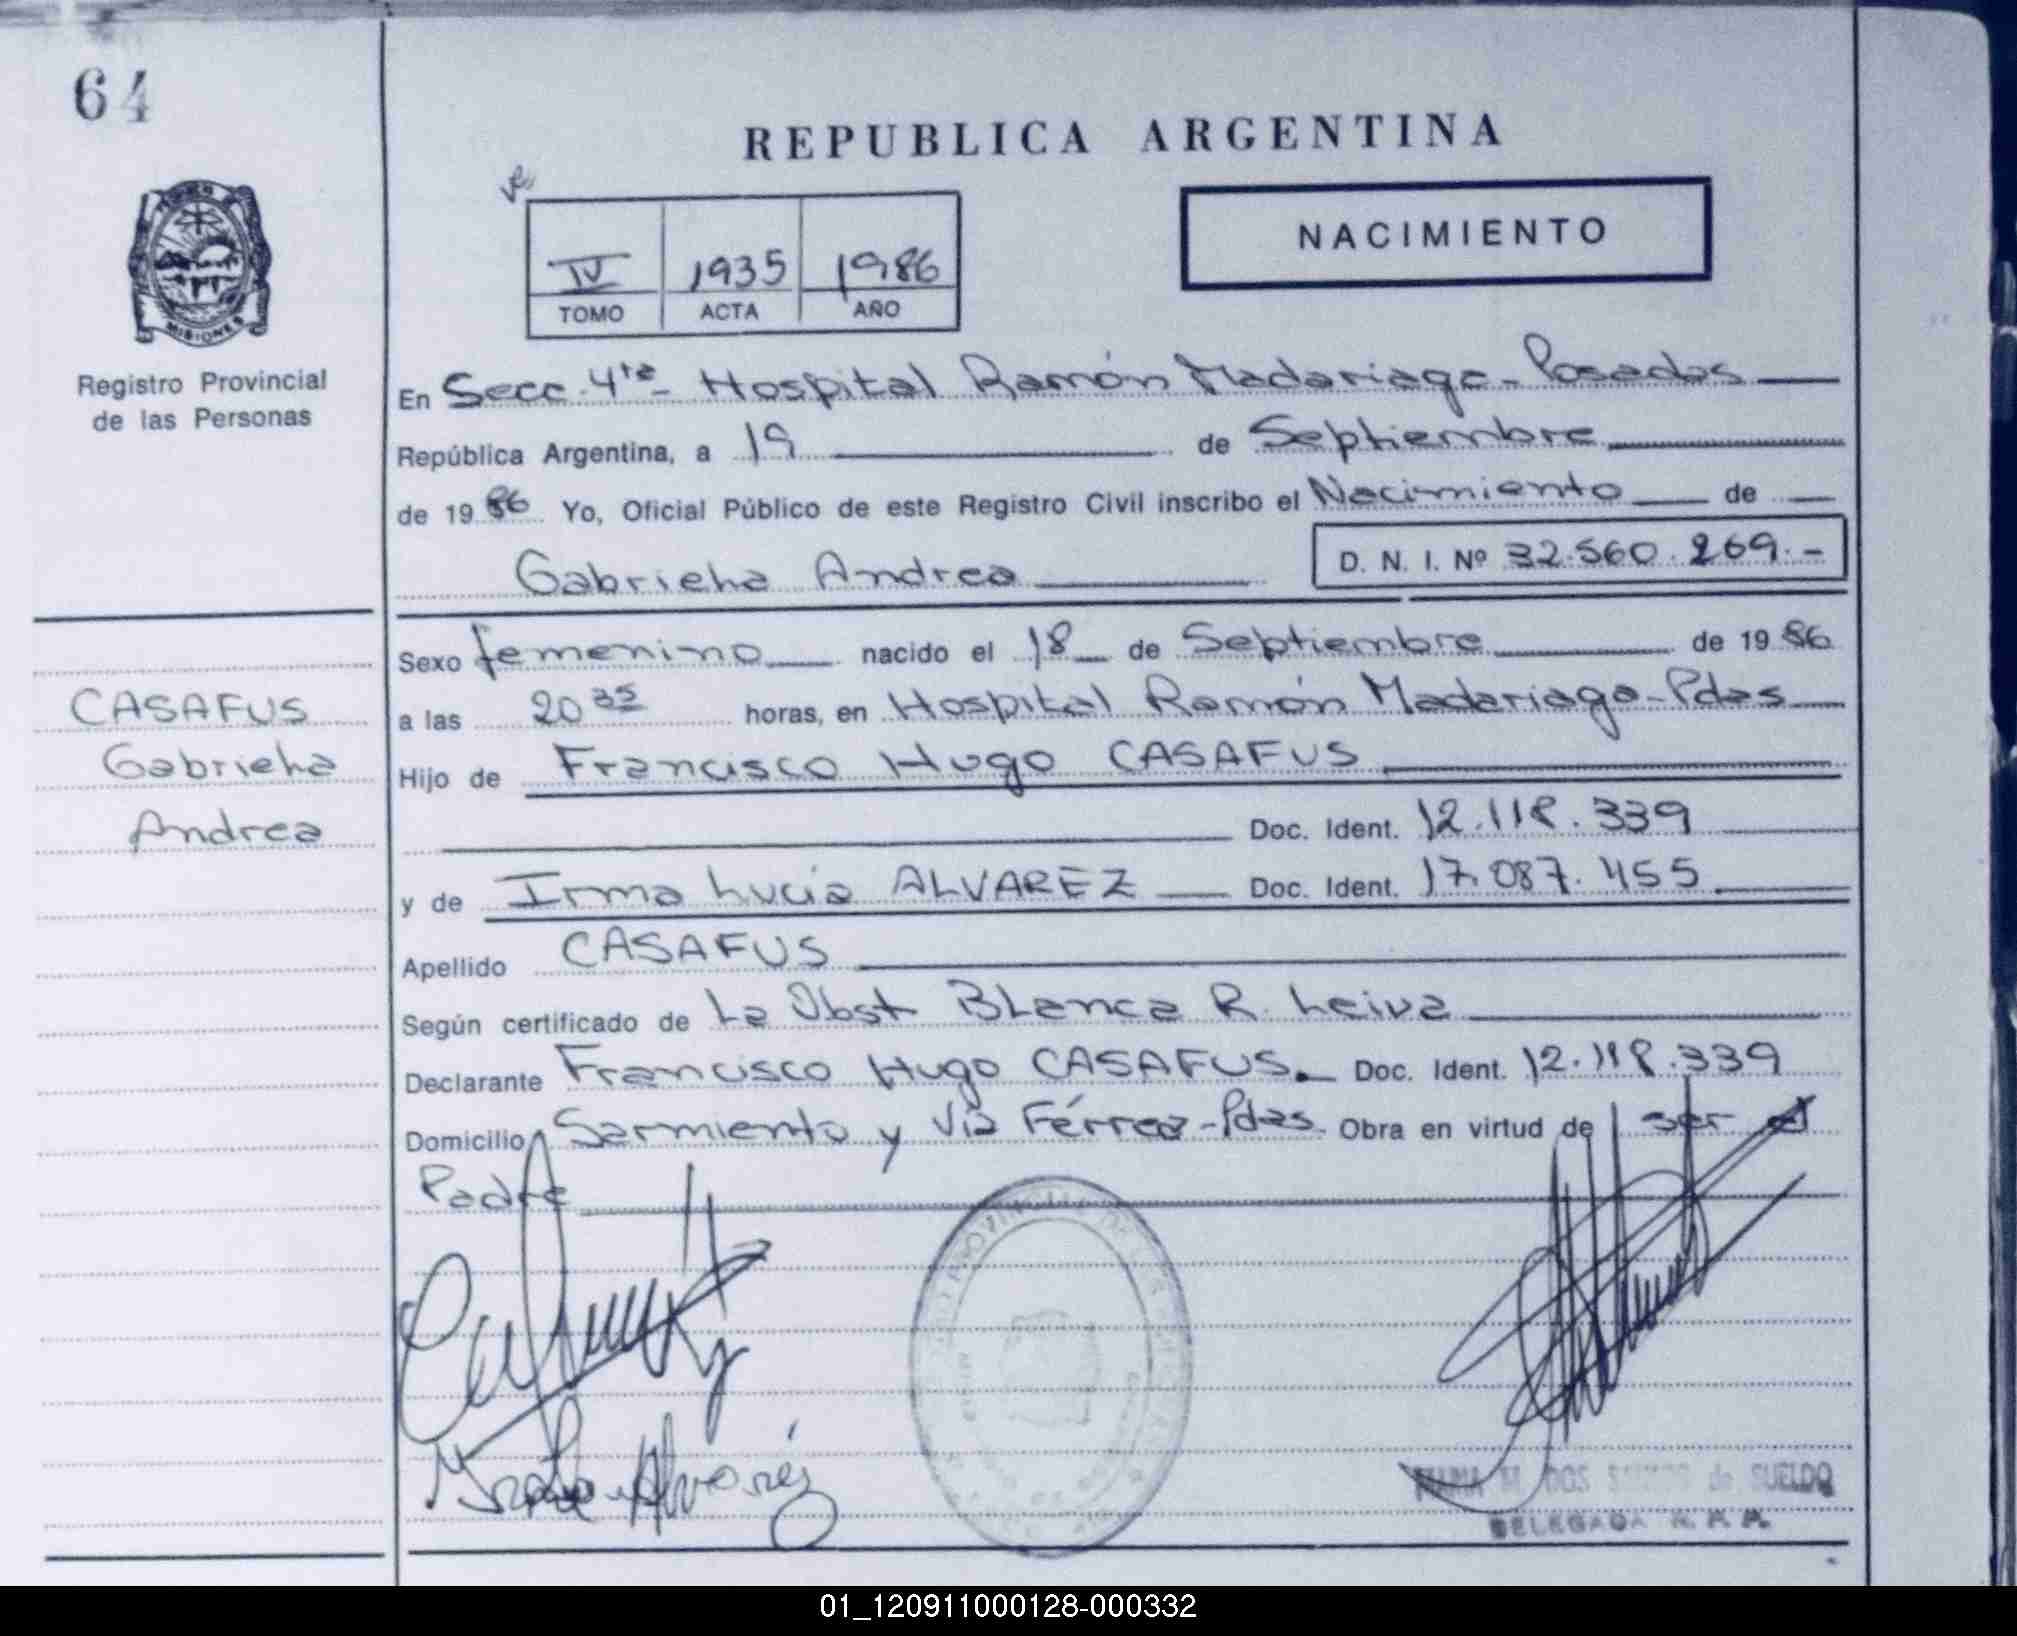 64
REPUBLICA ARGENTINA
IV 1935 1986
TOMO ACTA AÑO
NACIMIENTO
MISIONES
Registro Provincial
de las Personas
En Secc. 4ta - Hospital Ramón Madariaga - Posadas
República Argentina, a 19 de Septiembre
de 1986 Yo, Oficial Público de este Registro Civil inscribo el Nacimiento de
Gabriela Andrea D. N. I. Nº 32.560.269.-
Sexo femenino nacido el 18 de Septiembre de 1986
CASAFUS
Gabriela
Andrea
a las 20 35 horas, en Hospital Ramón Madariaga - Pdas
Hijo de Francisco Hugo CASAFUS
Doc. Ident. 12.118.339
y de Irma Lucía ALVAREZ Doc. Ident. 17.087.455
Apellido CASAFUS
Según certificado de La Obst Blanca R. Leiva
Declarante Francisco Hugo CASAFUS. Doc. Ident. 12.118.339
Domicilio Sarmiento y Vía Férrea - Pdas. Obra en virtud de ser el
Padre
Alvarez
DOS SANTOS de SUELDO
DELEGADA R. P. P.
01_120911000128-000332